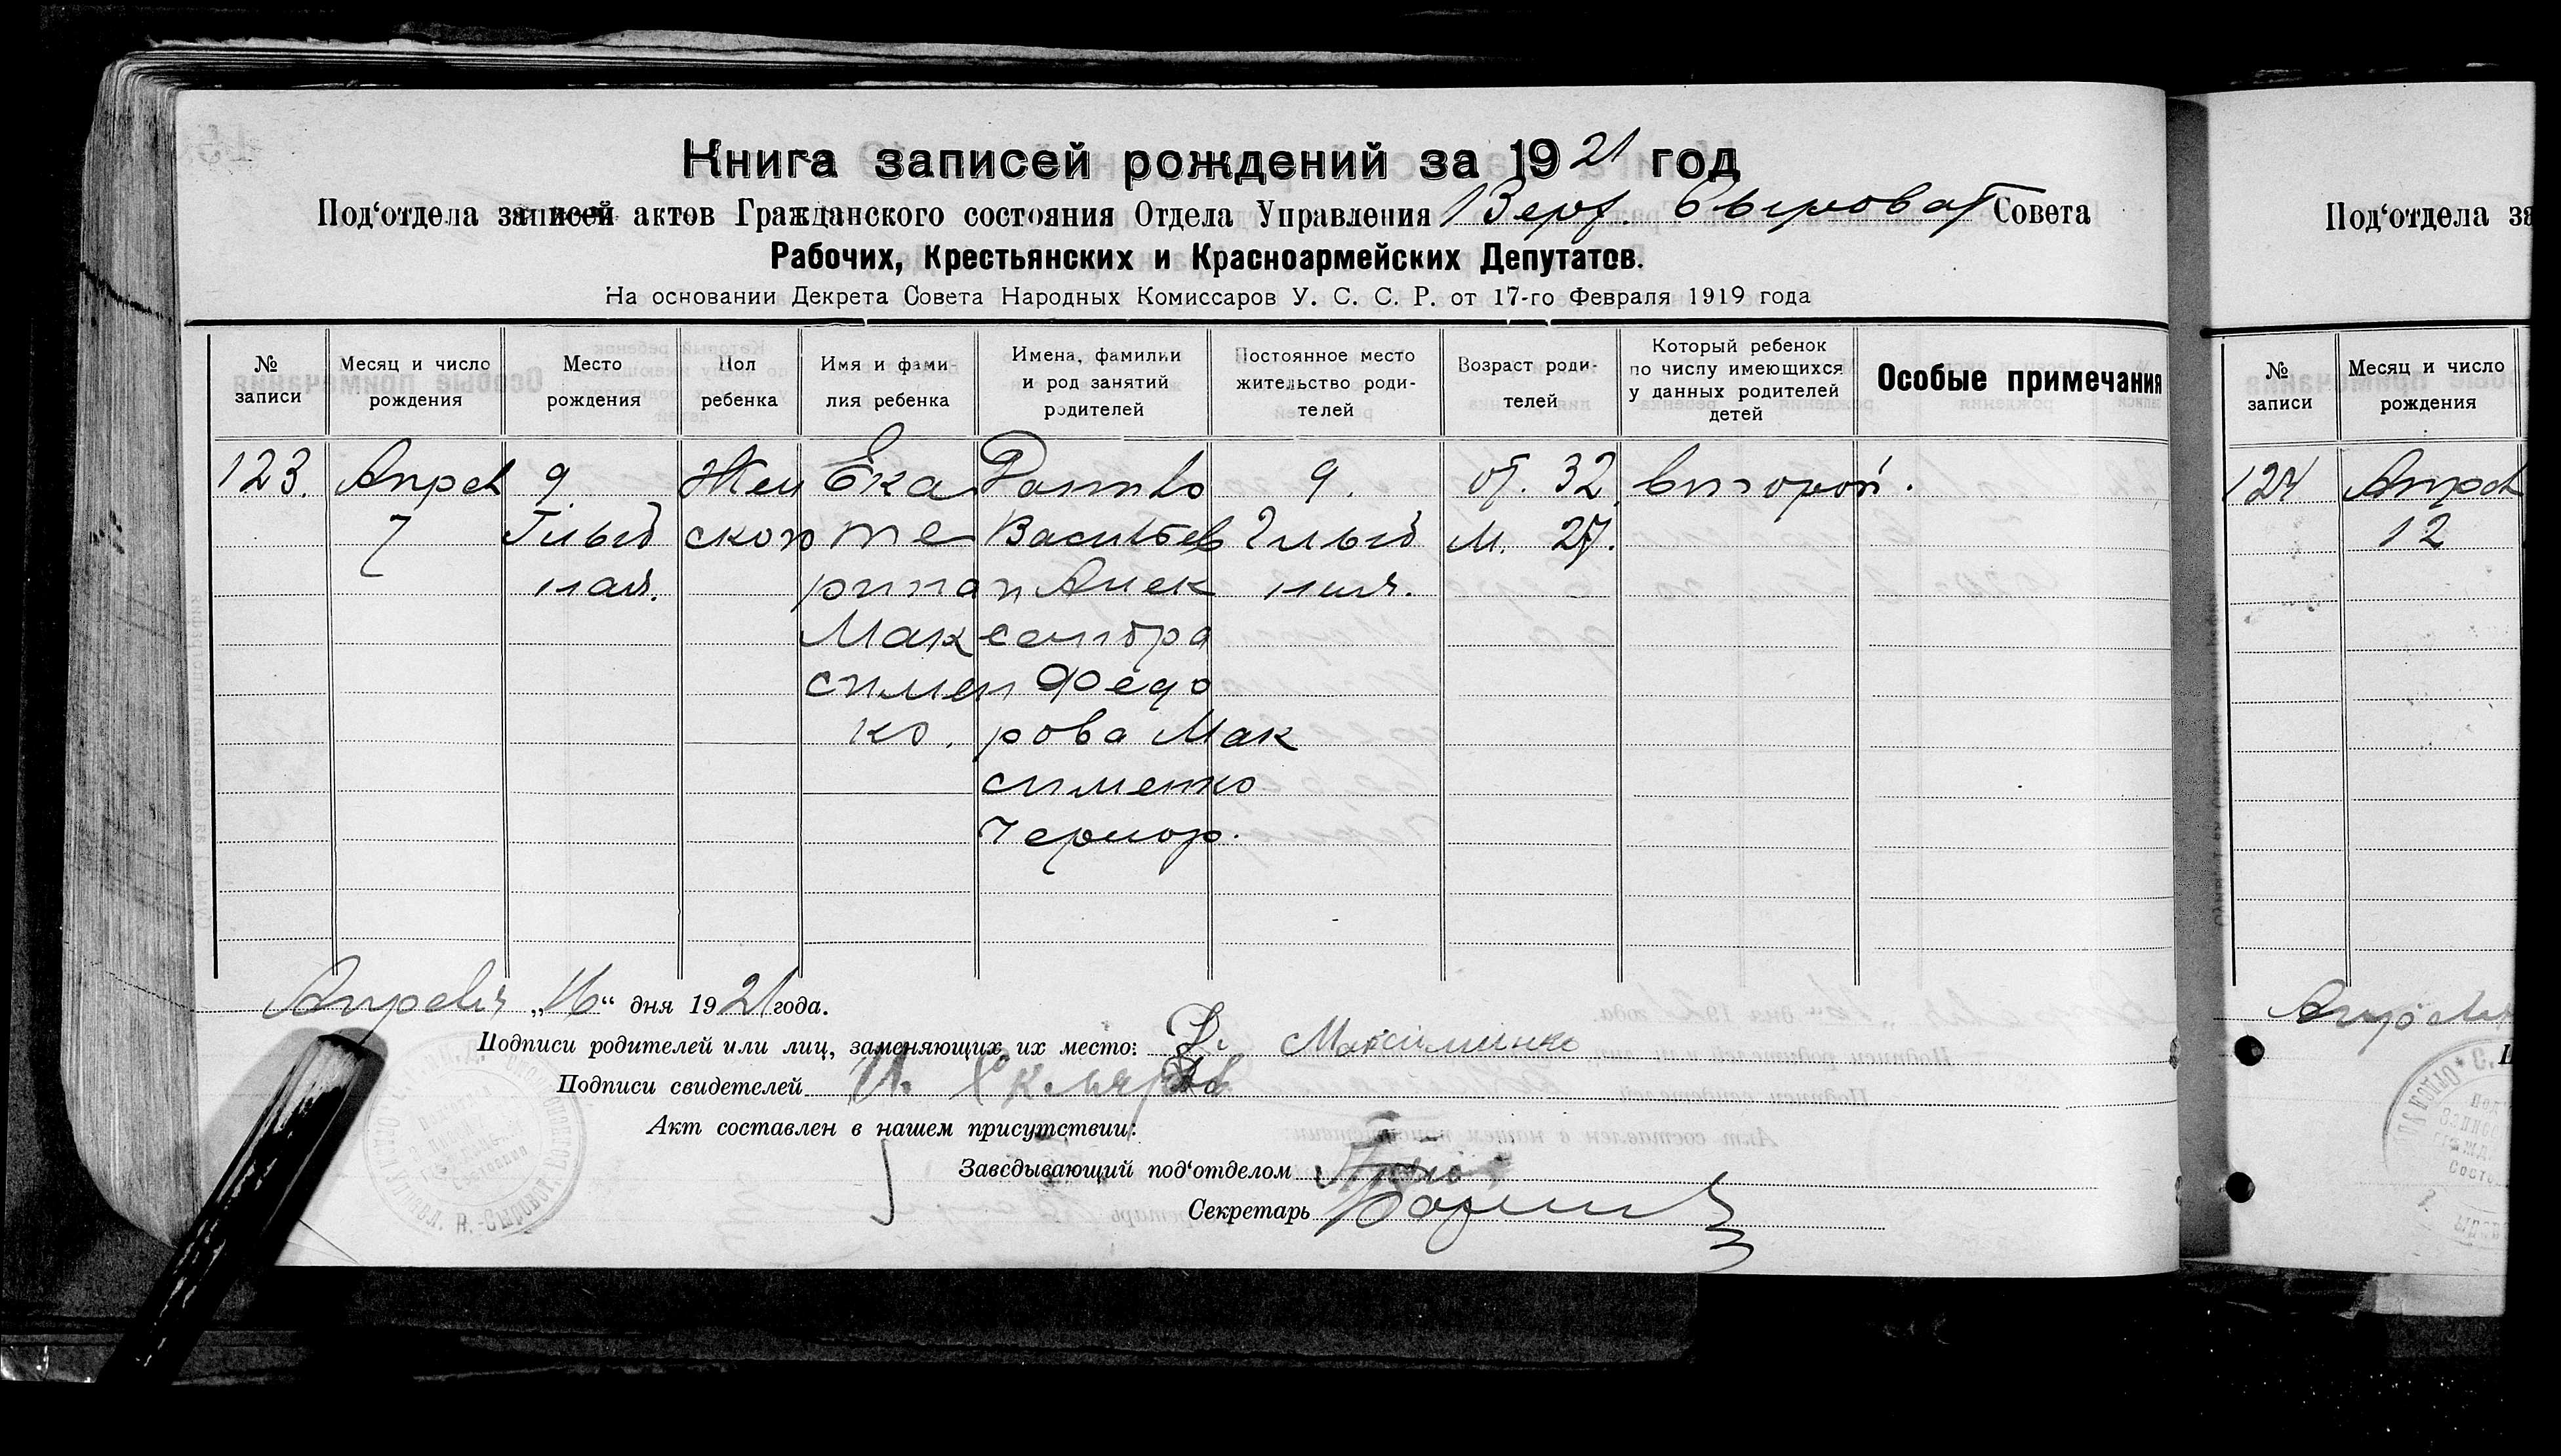 Книга записей рождений за 1921 год
Под‘отдела записей актов Гражданского состояния Отдела Управления Верх. Сыроват Совета
Рабочих, Крестьянских и Красноармейских Депутатов.
На основании Декрета Совета Народных Комиссаров У. С. С. Р. от 17-го Февраля 1919 года
№ записи
Месяц и число рождения
Место рождения
Пол ребенка
Имя и фами-
лия ребенка
Имена, фамилии
и род занятий
родителей
Постоянное место
жительство роди-
телей
Возраст роди-
телей
Который ребенок
по числу имеющихся
у данных родителей
детей
Особые примечания
123.
Апрел
7
Женског
Ека
те
рина
Мак
симен
ко.
Васильев
и Алек
сандра
Федо
рова Мак
сименко
Чернор.
от. 32
м. 27.
второй.
Апреля „16“ дня 1921 года.
Подписи родителей или лиц, заменяющих их место: Максиминко
Подписи свидетелей
Акт составлен в нашем присутствии:
Заведывающий под‘отделом
Секретарь
Под‘отдела за
№ записи
Месяц и число рождения
124
Апрел
12